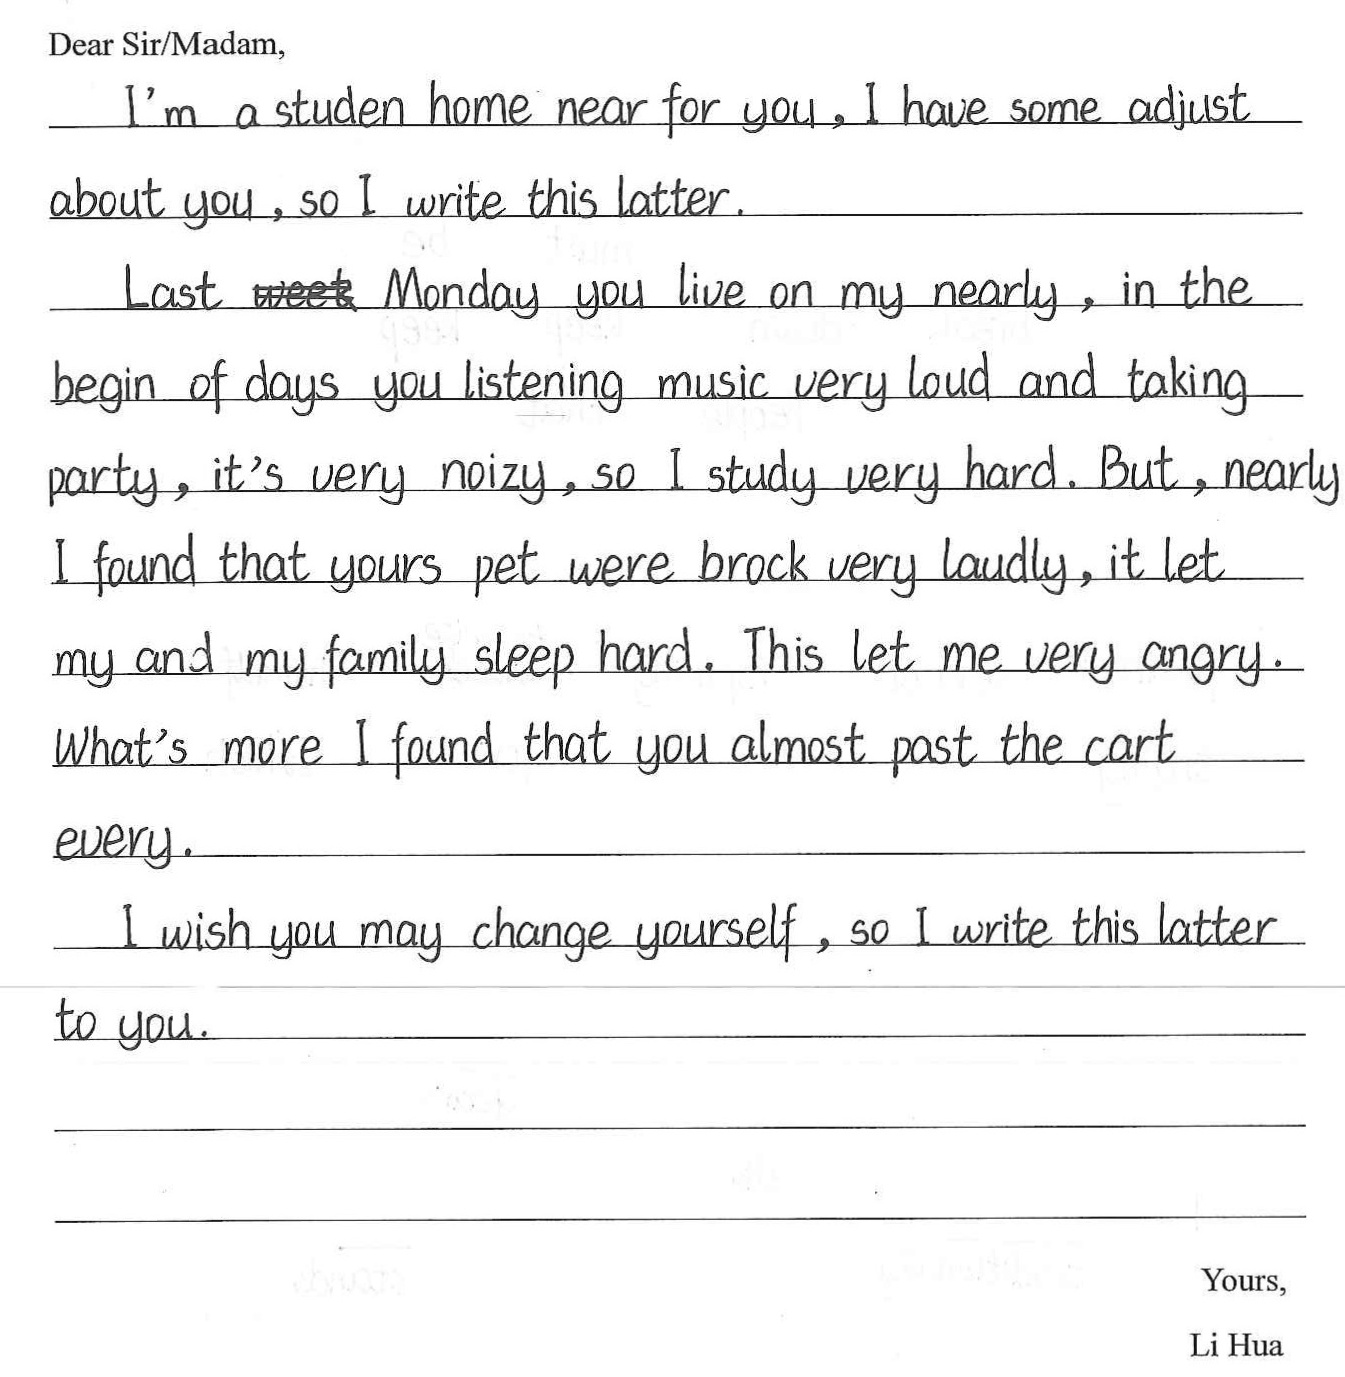 Dear Sir/Madam,
I'm a studen home near for you, I have some adjust
about you, so I write this latter.
Last Monday you live on my nearly, in the
begin of days you listening music very loud and taking
party, it's very noizy, so I study very hard. But, nearly
I found that yours pet were brock very laudly, it let
my and my family sleep hard. This let me very angry.
What's more I found that you almost past the cart
every.
I wish you may change yourself, so I write this latter
to you.
Yours,
Li Hua